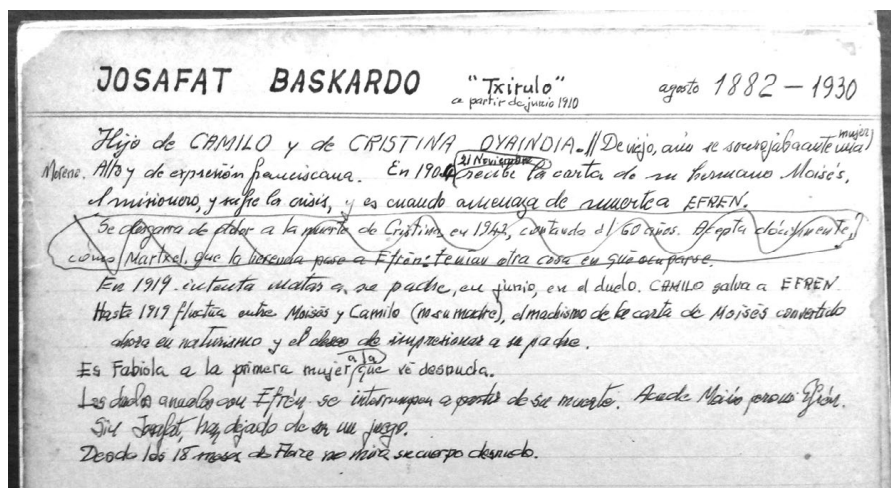 JOSAFAT BASKARDO "Txirulo" agosto 1882 – 1930
a partir de junio 1910
Hijo de CAMILO y de CRISTINA OYAINDIA. // De viejo, aún se sonrojaba ante una mujer
Moreno. Alto y de expresión franciscana. En 1904 (21 Noviembre) recibe la carta de su hermano Moisés,
el misionero, y sufre la crisis, y es cuando amenaza de muerte a EFREN.
Se desgarra de dolor a la muerte de Cristina, en 1942, contando él 60 años. Acepta dócilmente,
como Martxel, que la herencia pase a Efrén: tenían otra cosa en qué ocuparse.
En 1919 intenta matar a su padre, en junio, en el duelo. CAMILO salva a EFREN
Hasta 1919 fluctúa entre Moisés y Camilo (no su madre), el machismo de la carta de Moisés convertido
ahora en naturismo y el deseo de impresionar a su padre.
Es Fabiola a la primera mujer (a la) que ve desnuda.
Los duelos anuales con Efrén se interrumpen a partir de su muerte. Acude Moisés pero no Efrén.
Sin Josafat, han dejado de ser un juego.
Desde los 18 meses de Flora no mira su cuerpo desnudo.